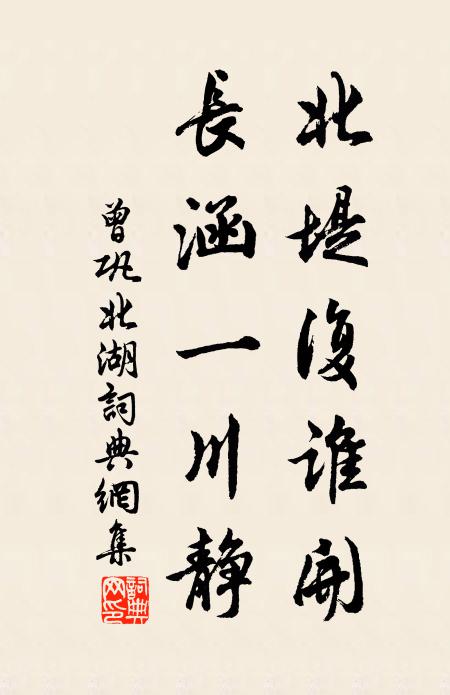 北堤復誰開
長涵一川靜
曾巩北湖詞典網集
詞典網印